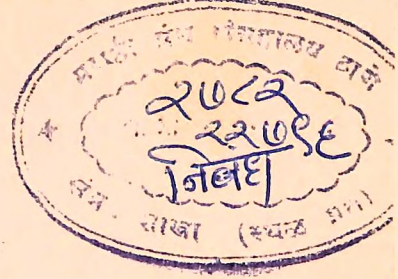 मराठी ग्रंथ संग्रहालय ठाणे
२७८२
२२७९६
निबंध
शाखा (स्थळ प्रत)